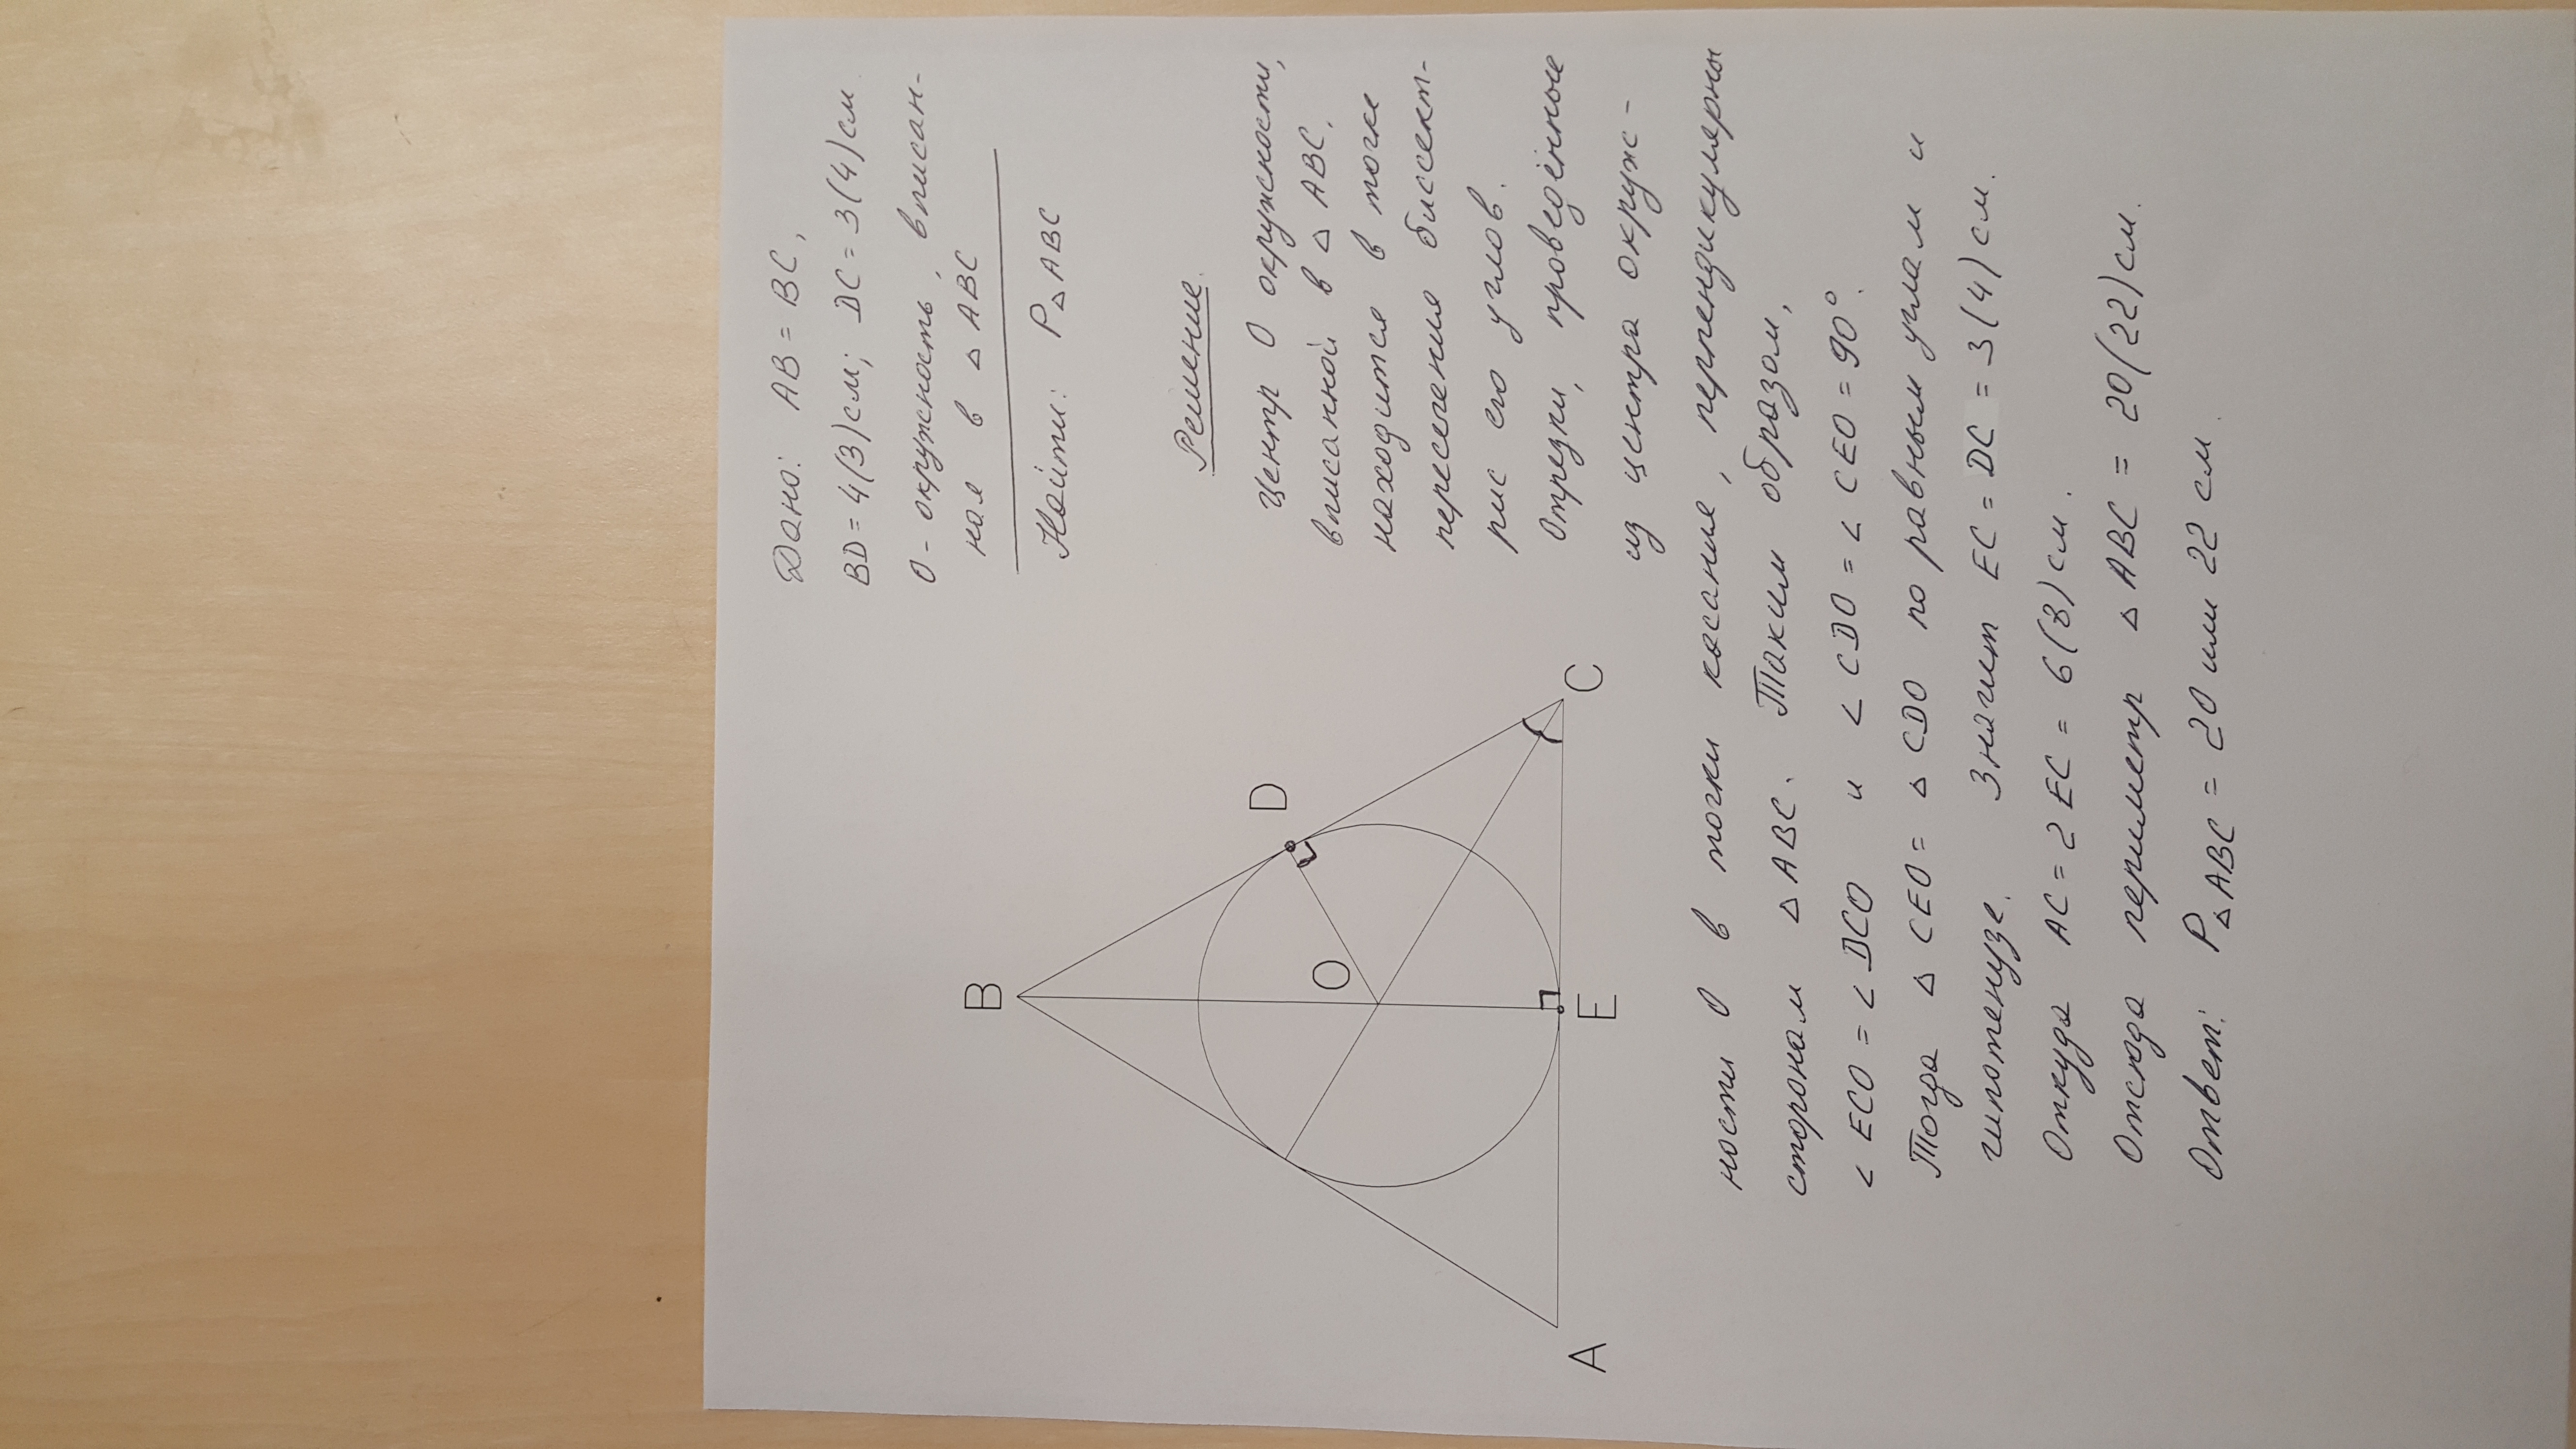 Дано: AB = BC,
BD = 4(3) см; DC = 3(4) см
O - окружность, вписан-
ная в △ ABC
Найти: P△ABC
Решение.
Центр O окружности,
вписанной в △ ABC,
находится в точке
пересечения биссект-
рис его углов.
Отрезки, проведённые
из центра окруж-
ности O в точки касания, перпендикулярны
сторонам △ABC. Таким образом,
∠ ECO = ∠ DCO и ∠ CDO = ∠ CEO = 90°.
Тогда △ CEO = △ CDO по равным углам и
гипотенузе. Значит EC = DC = 3(4) см.
Откуда AC = 2 EC = 6(8) см.
Отсюда периметр △ ABC = 20(22) см.
Ответ: P△ABC = 20 или 22 см.
B
D
O
C
E
A